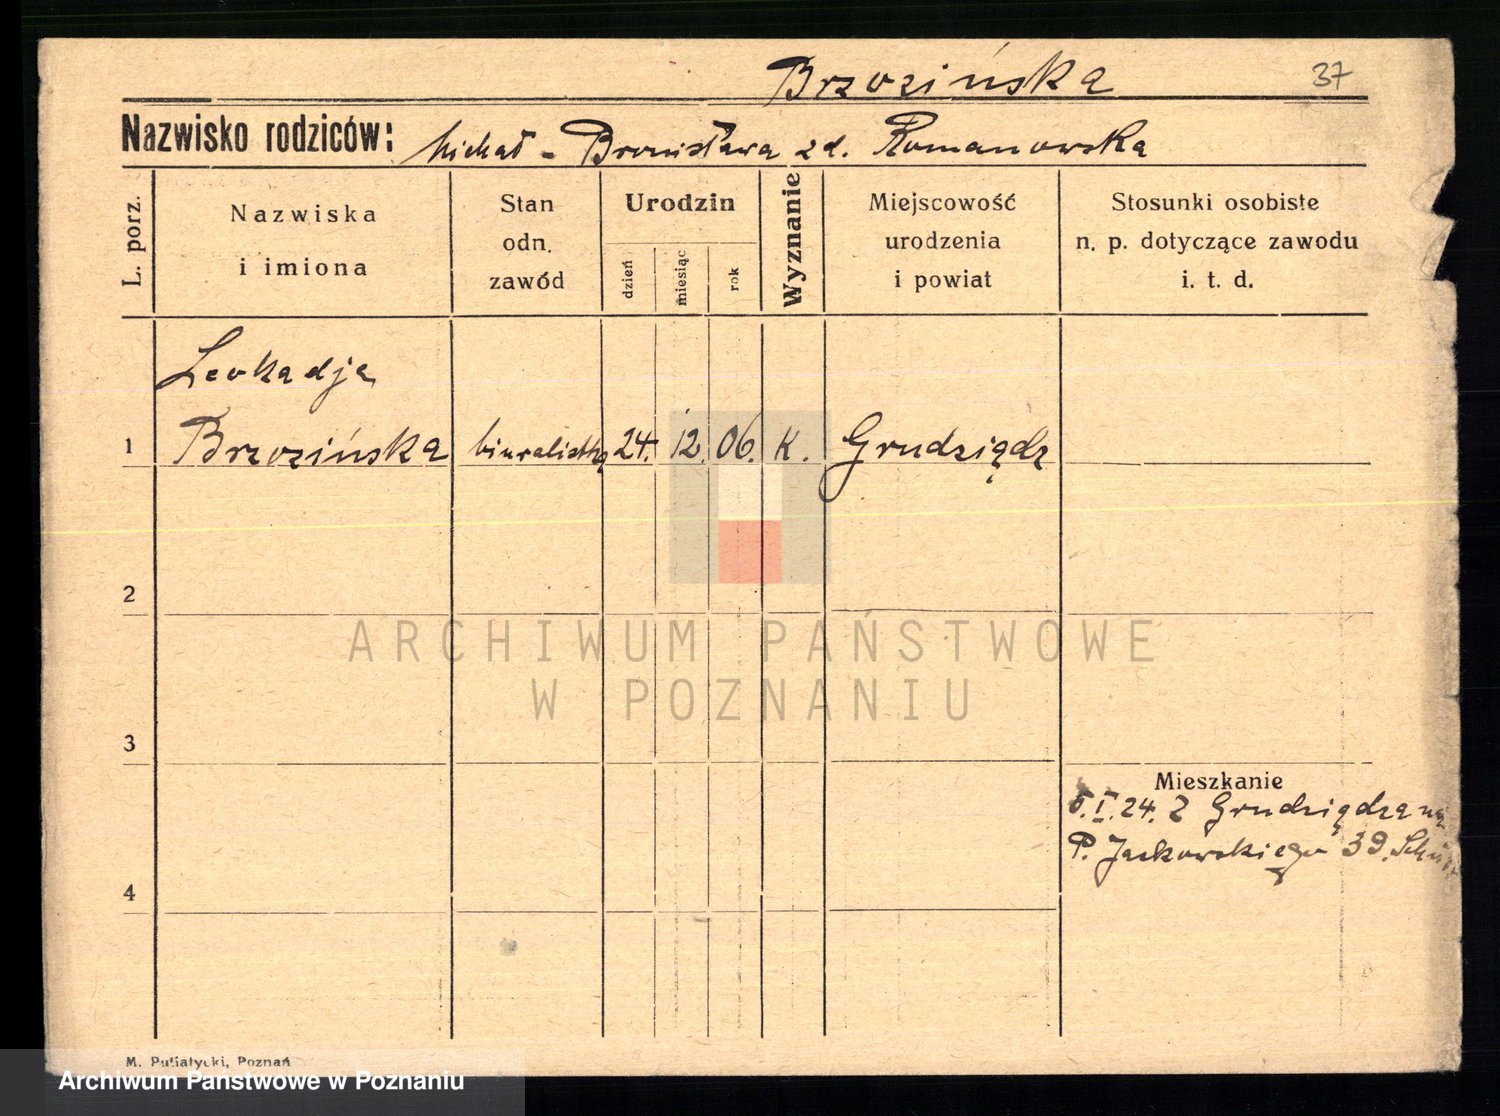 Brzozińska 37
Nazwisko rodziców: Michał - Bronisława zd. Romanowska
L. porz.
Nazwiska
i imiona
Stan
odn.
zawód
Urodzin
dzień
miesiąc
rok
Wyznanie
Miejscowość
urodzenia
i powiat
Stosunki osobiste
n. p. dotyczące zawodu
i. t. d.
Leokadja
1 Brzozińska biuralistka 24. 12. 06. K. Grudziądz
2
ARCHIWUM PAŃSTWOWE
W POZNANIU
3
Mieszkanie
I. 24. Z Grudziądza
P. Jackowskiego 39.
4
M. Putiatycki, Poznań
Archiwum Państwowe w Poznaniu